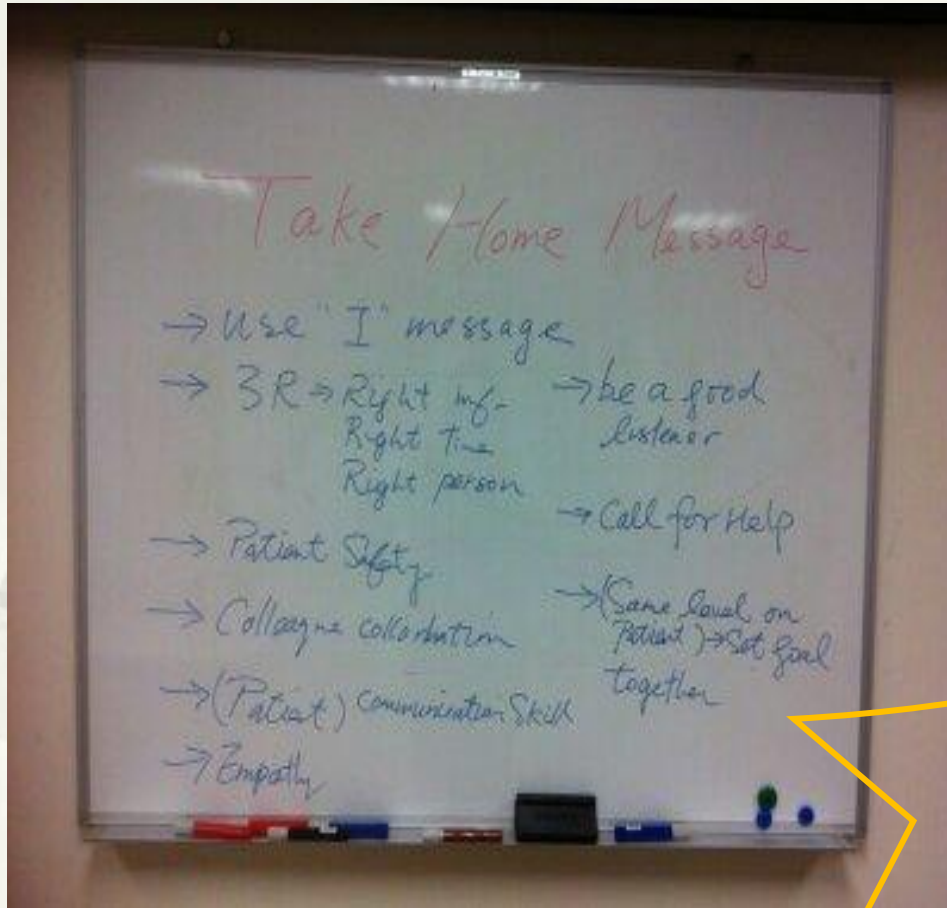 Take Home Message
→ Use "I" message
→ 3R → Right inf.
Right Time
Right person
→ Patient Safety
→ Colleague
→ (Patient) Communication Skill
→ Empathy
→ be a good
listener
→ Call for Help
→ (Same level on
Patient) → Set goal
together